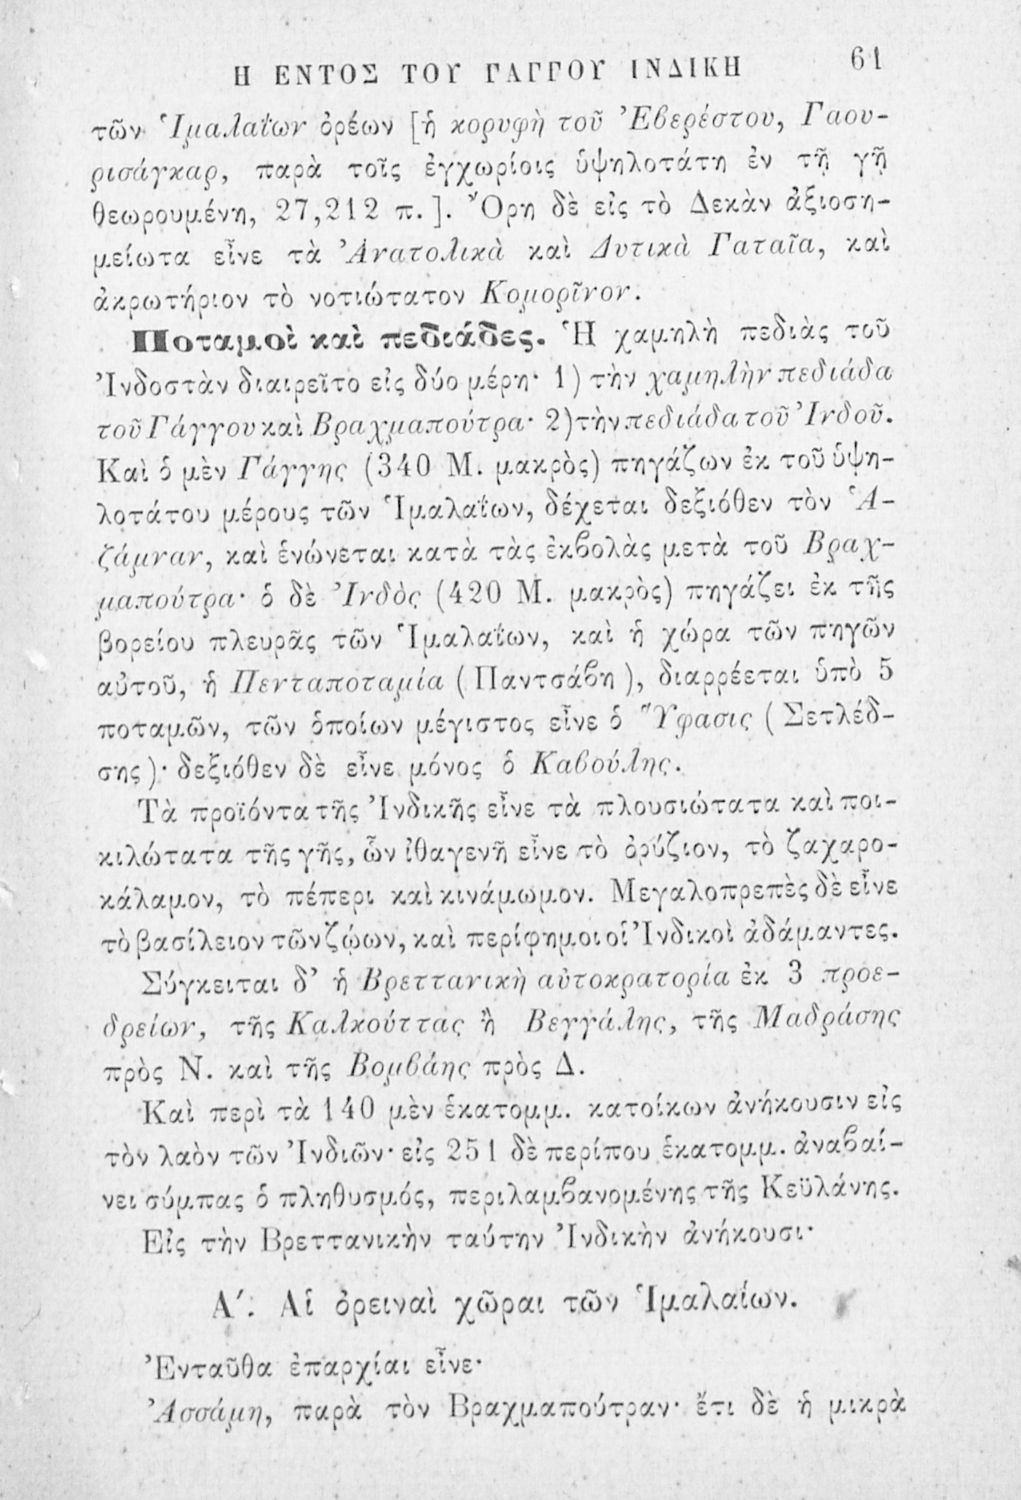 Η ΕΝΤΟΣ ΤΟΥ ΓΑΓΓΟΥ ΙΝΔΙΚΗ 61
τῶν Ἱμαλαΐων ὀρέων [ἡ κορυφὴ τοῦ Ἐβερέστου, Γαου-
ρισάγκαρ, παρὰ τοῖς ἐγχωρίοις ὑψηλοτάτη ἐν τῇ γῇ
θεωρουμένη, 27,212 π.]. Ὄρη δὲ εἰς τὸ Δεκὰν ἀξιοση-
μείωτα εἶνε τὰ Ἀνατολικὰ καὶ Δυτικὰ Γαταῖα, καὶ
ἀκρωτήριον τὸ νοτιώτατον Κομορῖνον.
Ποταμοὶ καὶ πεδιάδες. Ἡ χαμηλὴ πεδιὰς τοῦ
Ἰνδοστὰν διαιρεῖτο εἰς δύο μέρη· 1) τὴν χαμηλὴν πεδιάδα
τοῦ Γάγγου καὶ Βραχμαπούτρα· 2) τὴν πεδιάδα τοῦ Ἰνδοῦ.
Καὶ ὁ μὲν Γάγγης (340 Μ. μακρὸς) πηγάζων ἐκ τοῦ ὑψη-
λοτάτου μέρους τῶν Ἱμαλαΐων, δέχεται δεξιόθεν τὸν Ἁ-
ζάμναν, καὶ ἑνώνεται κατὰ τὰς ἐκβολὰς μετὰ τοῦ Βραχ-
μαπούτρα· ὁ δὲ Ἰνδὸς (420 Μ. μακρὸς) πηγάζει ἐκ τῆς
βορείου πλευρᾶς τῶν Ἱμαλαΐων, καὶ ἡ χώρα τῶν πηγῶν
αὐτοῦ, ἡ Πενταποταμία (Παντσάβη), διαρρέεται ὑπὸ 5
ποταμῶν, τῶν ὁποίων μέγιστος εἶνε ὁ Ὕφασις (Σετλέδ-
σης)· δεξιόθεν δὲ εἶνε μόνος ὁ Καβούλης.
Τὰ προϊόντα τῆς Ἰνδικῆς εἶνε τὰ πλουσιώτατα καὶ ποι-
κιλώτατα τῆς γῆς, ὧν ἰθαγενῆ εἶνε τὸ ὀρύζιον, τὸ ζαχαρο-
κάλαμον, τὸ πέπερι καὶ κινάμωμον. Μεγαλοπρεπὲς δὲ εἶνε
τὸ βασίλειον τῶν ζώων, καὶ περίφημοι οἱ Ἰνδικοὶ ἀδάμαντες.
Σύγκειται δ' ἡ Βρεττανικὴ αὐτοκρατορία ἐκ 3 προε-
δρείων, τῆς Καλκούττας ἢ Βεγγάλης, τῆς Μαδράσης
πρὸς Ν. καὶ τῆς Βομβάης πρὸς Δ.
Καὶ περὶ τὰ 140 μὲν ἑκατομμ. κατοίκων ἀνήκουσιν εἰς
τὸν λαὸν τῶν Ἰνδιῶν· εἰς 251 δὲ περίπου ἑκατομμ. ἀναβαί-
νει σύμπας ὁ πληθυσμός, περιλαμβανομένης τῆς Κεϋλάνης.
Εἰς τὴν Βρεττανικὴν ταύτην Ἰνδικὴν ἀνήκουσι·
Α΄. Αἱ ὀρειναὶ χῶραι τῶν Ἱμαλαίων.
Ἐνταῦθα ἐπαρχίαι εἶνε·
Ἀσσάμη, παρὰ τὸν Βραχμαπούτραν· ἔτι δὲ ἡ μικρὰ